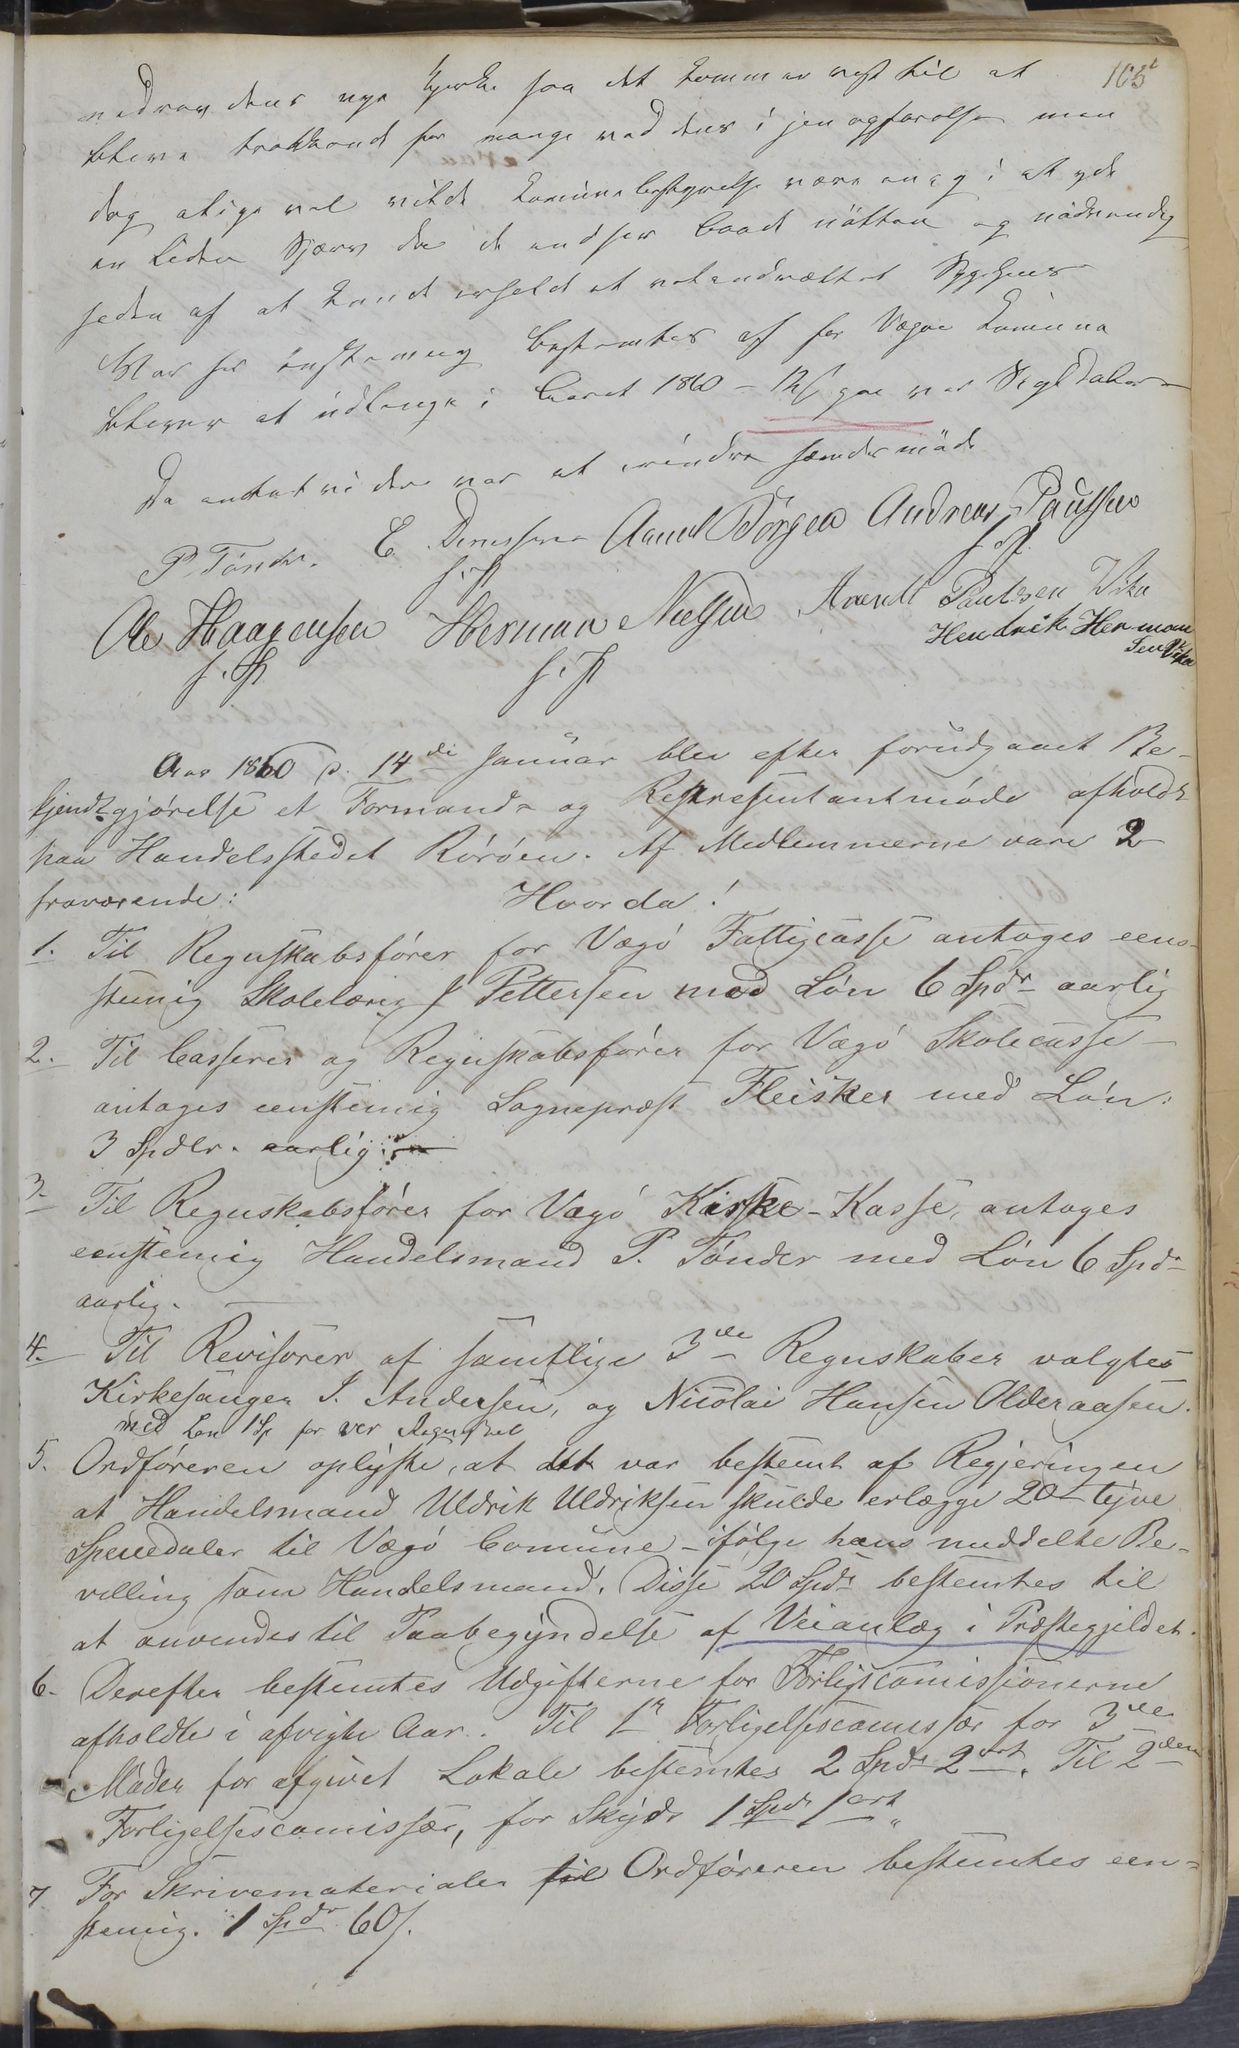 103
nye Kjerke saa det kommer vest til at
blive trekkende for mange ved dens i
dog vel vilde Komunebestyrelse være enig i at yde
en liden Skjærv da de andser baade nötten og nödvendig
heden af at Sygehuus
bestemtes af for Vægöe Komune
bliver at udlenge i Aaret 1860 - 12
Da entet videre var at erindre hævedes möde
P. Tönder. E. Arent Börgen Andreas Paulssen
Ole Haagensen Herman Nielsen Arent Paulsen Vika
Hendrik Herman
sen Vika
Aar 1860 d. 14de Januar blev efter forudgaaet Be-
kjendtgjörelse et Formands og Repræsentantmöde afholdt
paa Handelsstedet Röröen. Af Medlemmerne vare 2
fraværende: Hvorda!
1. Til Regnskabsförer for Vægö Fattigcasse antoges eens-
stemig Skolelærer J Pettersen med Lön 6 Spdr aarlig
2. Til Casserer og Regnskabsförer for Vægö Skolecasse
antoges eenstemig Sognepræst Fleisker med Lön:
3 Spdlr. aarlig.
3. Til Regnskabsförer for Vægö Kirske-Kasse, antoges
eenstemig Handelsmand P. Tönder med Lön 6 Spdr
aarlig.
4. Til Revisorer af samtlige 3de Regnskaber valgtes
Kirkesanger I. Andersen, og Nicolai Hansen Olderaasen.
med Lön 1 Sp for ver Regnskab
5. Ordföreren oplyste, at det var bestemt af Regjeringen
at Handelsmand Uldrik Uldriksen skulde erlægge 20 - tyve
Speciedaler til Vægö Comune - ifölge hans meddelte Be-
villing som Handelsmand. Disse 20 Spdr bestemtes til
at anvendes til Paabegyndelse af Veianlæg i Præstegjeldet.
6. Derefter bestemtes Udgifterne for Forligscomissionerne
afholdte i afvigte Aar. Til 1ste Forligelsescomissær for 3de
Möder for afgivet Lokale bestemtes 2 Spdr 2 ort. Til 2den
Forligelsescomissær, for Skyds 1 Spdr 1 ort "
7. For Skrivematerialer til Ordföreren bestemtes een-
stemig. 1 Spdr 60 s.